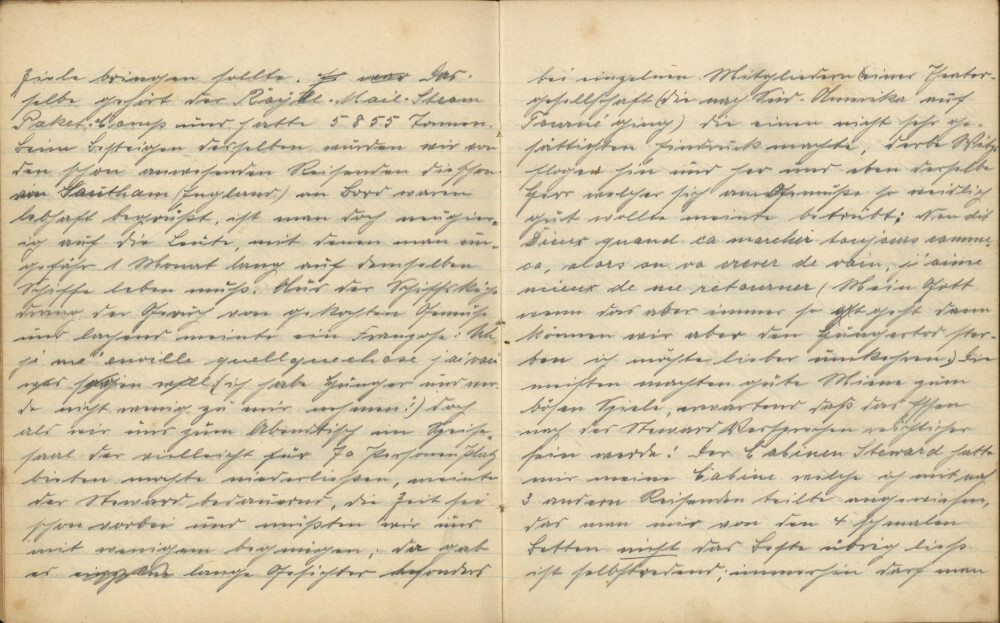 Ziele bringen sollte. Es war Das-
selbe gehört der Royal-Mail-Steam
Paket-Comp und hatte 5855 Tonnen.
Beim besteigen desselben wurden wir von
den schon anwesenden Reisenden die schon
von Southam (England) an Bord waren
lebhaft begrüßt, ist man doch neugier-
ig auf die Leute, mit denen man un-
gefähr 1 Monat lang auf demselben
Schiffe leben muß. Aus der Schiffsküche
drang der Geruch von gekochten Gemüse
und lachend meinte ein Franzose:
j'ai
was sagen will (ich habe Hunger und wer-
de nicht wenig zu mir nehmen!) doch
als wir uns zum Abendtisch im Speise-
saal der vielleicht für 70 Personen Platz
bieten mochte niederließen, meinte
der Steward bedauernd, die Zeit sei
schon vorbei und müßten wir uns
mit wenigem begnügen; da gab
es lange Gesichter besonders
bei einzelnen Mitgliedern einer Theater-
gesellschaft (die nach Süd-Amerika auf
Tourné ging) die einen nicht sehr ge-
sättigten Eindruck machte; derbe Witze
flogen hin und her und eben derselbe
Herr welcher sich am Gemüße so
gut wollte meinte betrübt:
Dieus quand ca marcher toujours comme
ca, alors on va crever de , j'aime
mieux de me retourner (Mein Gott
wenn das aber immer so geht dann
können wir aber den Hungertod ster-
ben ich möchte lieber umkehren.) Die
meisten machten gute Miene zum
bösen Spiele, erwartend daß das Essen
nach der Steward Versprechen reichlicher
sein werde! Der Cabinen Steward hatte
mir meine Cabine welche ich mit noch
3 andern Reisenden teilte angewiesen,
das man mir von den 4 schmalen
Betten nicht das beste übrig ließ
ist selbstredend; immerhin darf man